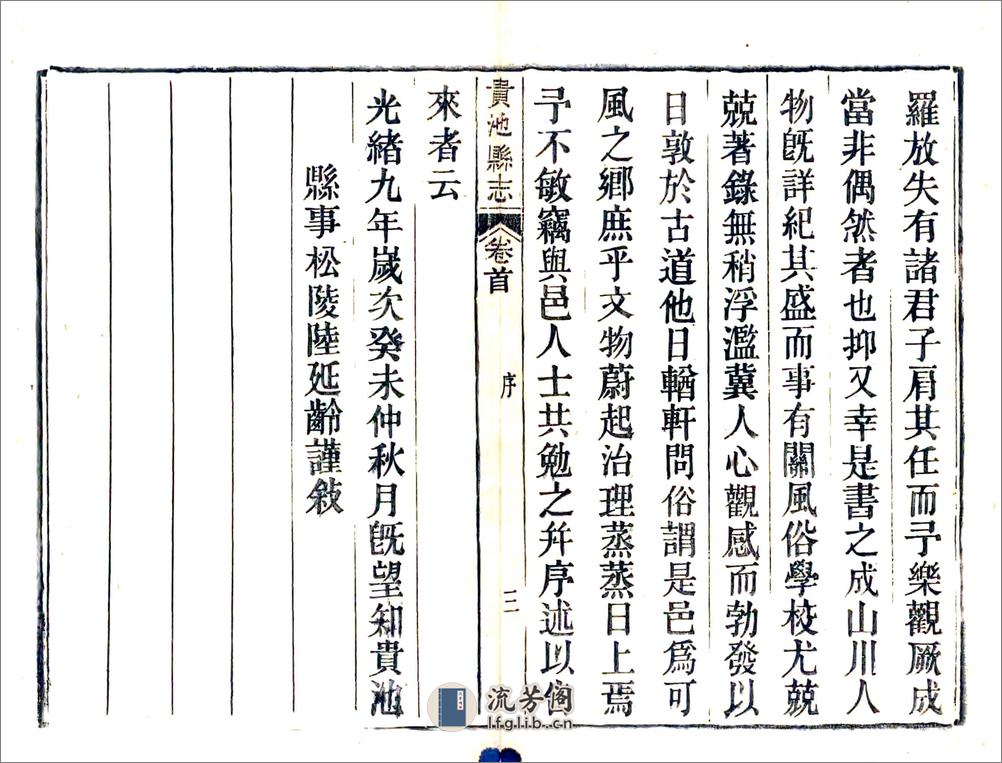 羅放失有諸君子肩其任而予樂觀厥成
當非偶然者也抑又幸是書之成山川人
物旣詳紀其盛而事有關風俗學校尤兢
兢著錄無稍浮濫冀人心觀感而勃發以
日敦於古道他日輶軒問俗謂是邑爲可
風之鄕庶乎文物蔚起治理蒸蒸日上焉
予不敏竊與邑人士共勉之幷序述以
貴池縣志 卷首 序 三
來者云
光緒九年歲次癸未仲秋月旣望知貴池
縣事松陵陸延齡謹敍
流芳阁
lfglib.cn